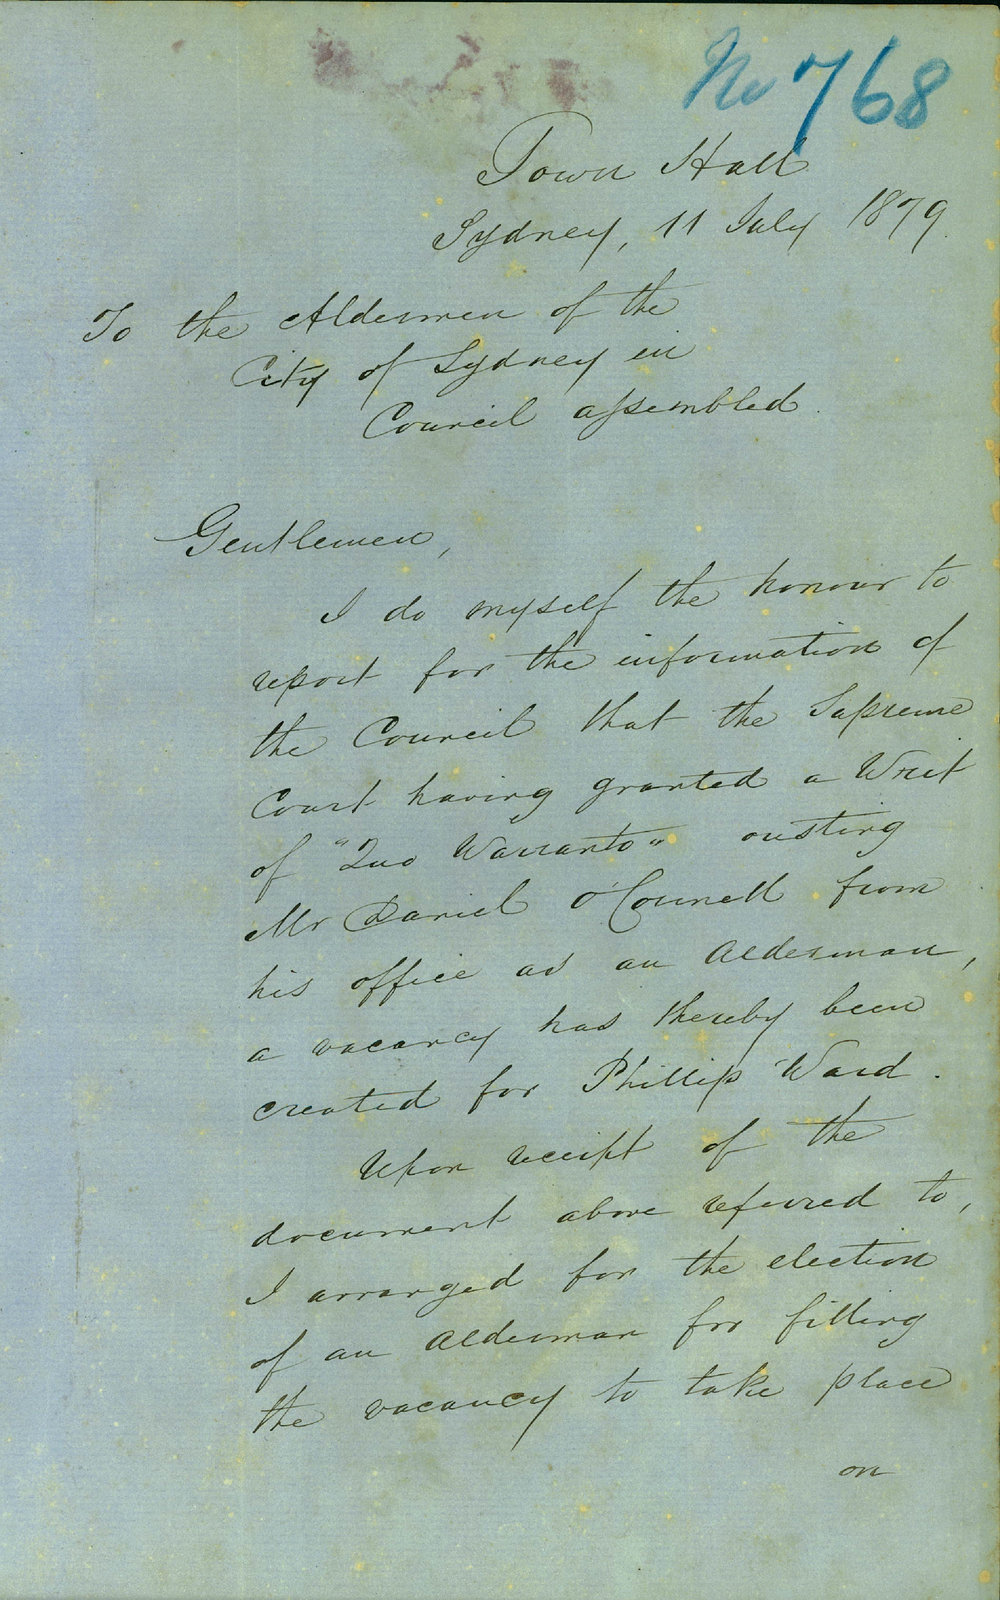 No 768
Town Hall
Sydney, 11 July 1879.
To the Aldermen of the
City of Sydney in
Council assembled.
Gentlemen,
I do myself the honour to
report for the information of
the Council that the Supreme
Court having granted a Writ
of "Quo Warranto" ousting
Mr Daniel O'Connell from
his office as an Alderman,
a vacancy has thereby been
created for Phillip Ward.
Upon receipt of the
document above referred to,
I arranged for the election
of an Alderman for filling
the vacancy to take place
on